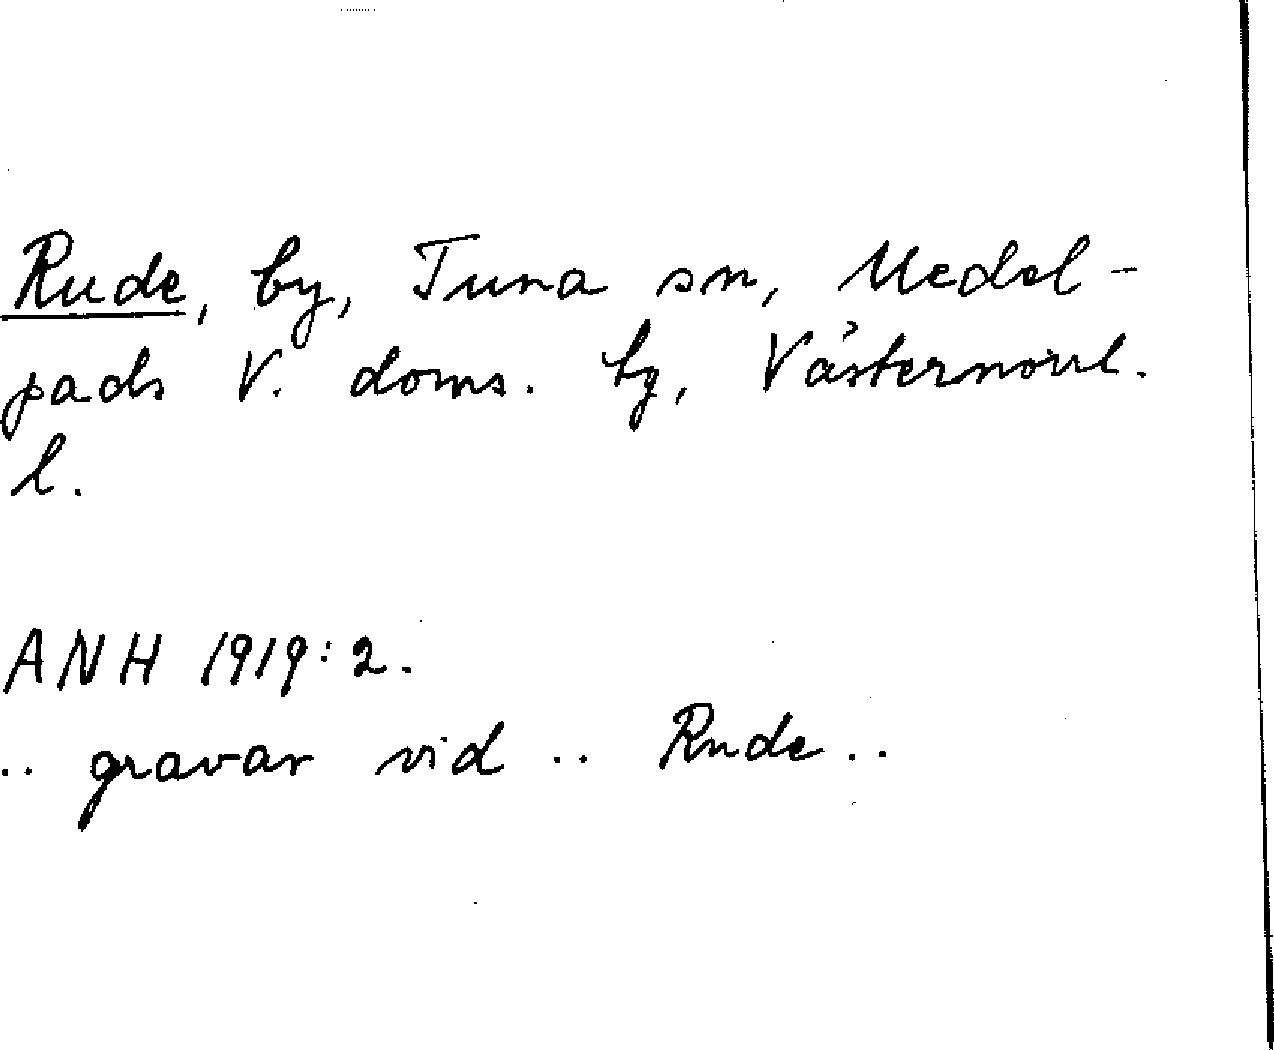 Rude, by, Tuna sn, Medel-
pads V. doms. by, Västernorrl.
l.
ANH 1919:2.
.. gravar vid .. Rude ..